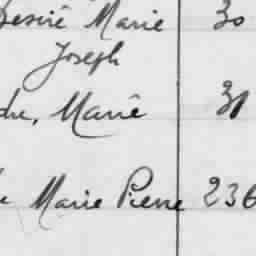 Desiré Marie 30
Joseph
Marie 31
Marie Pierre 236